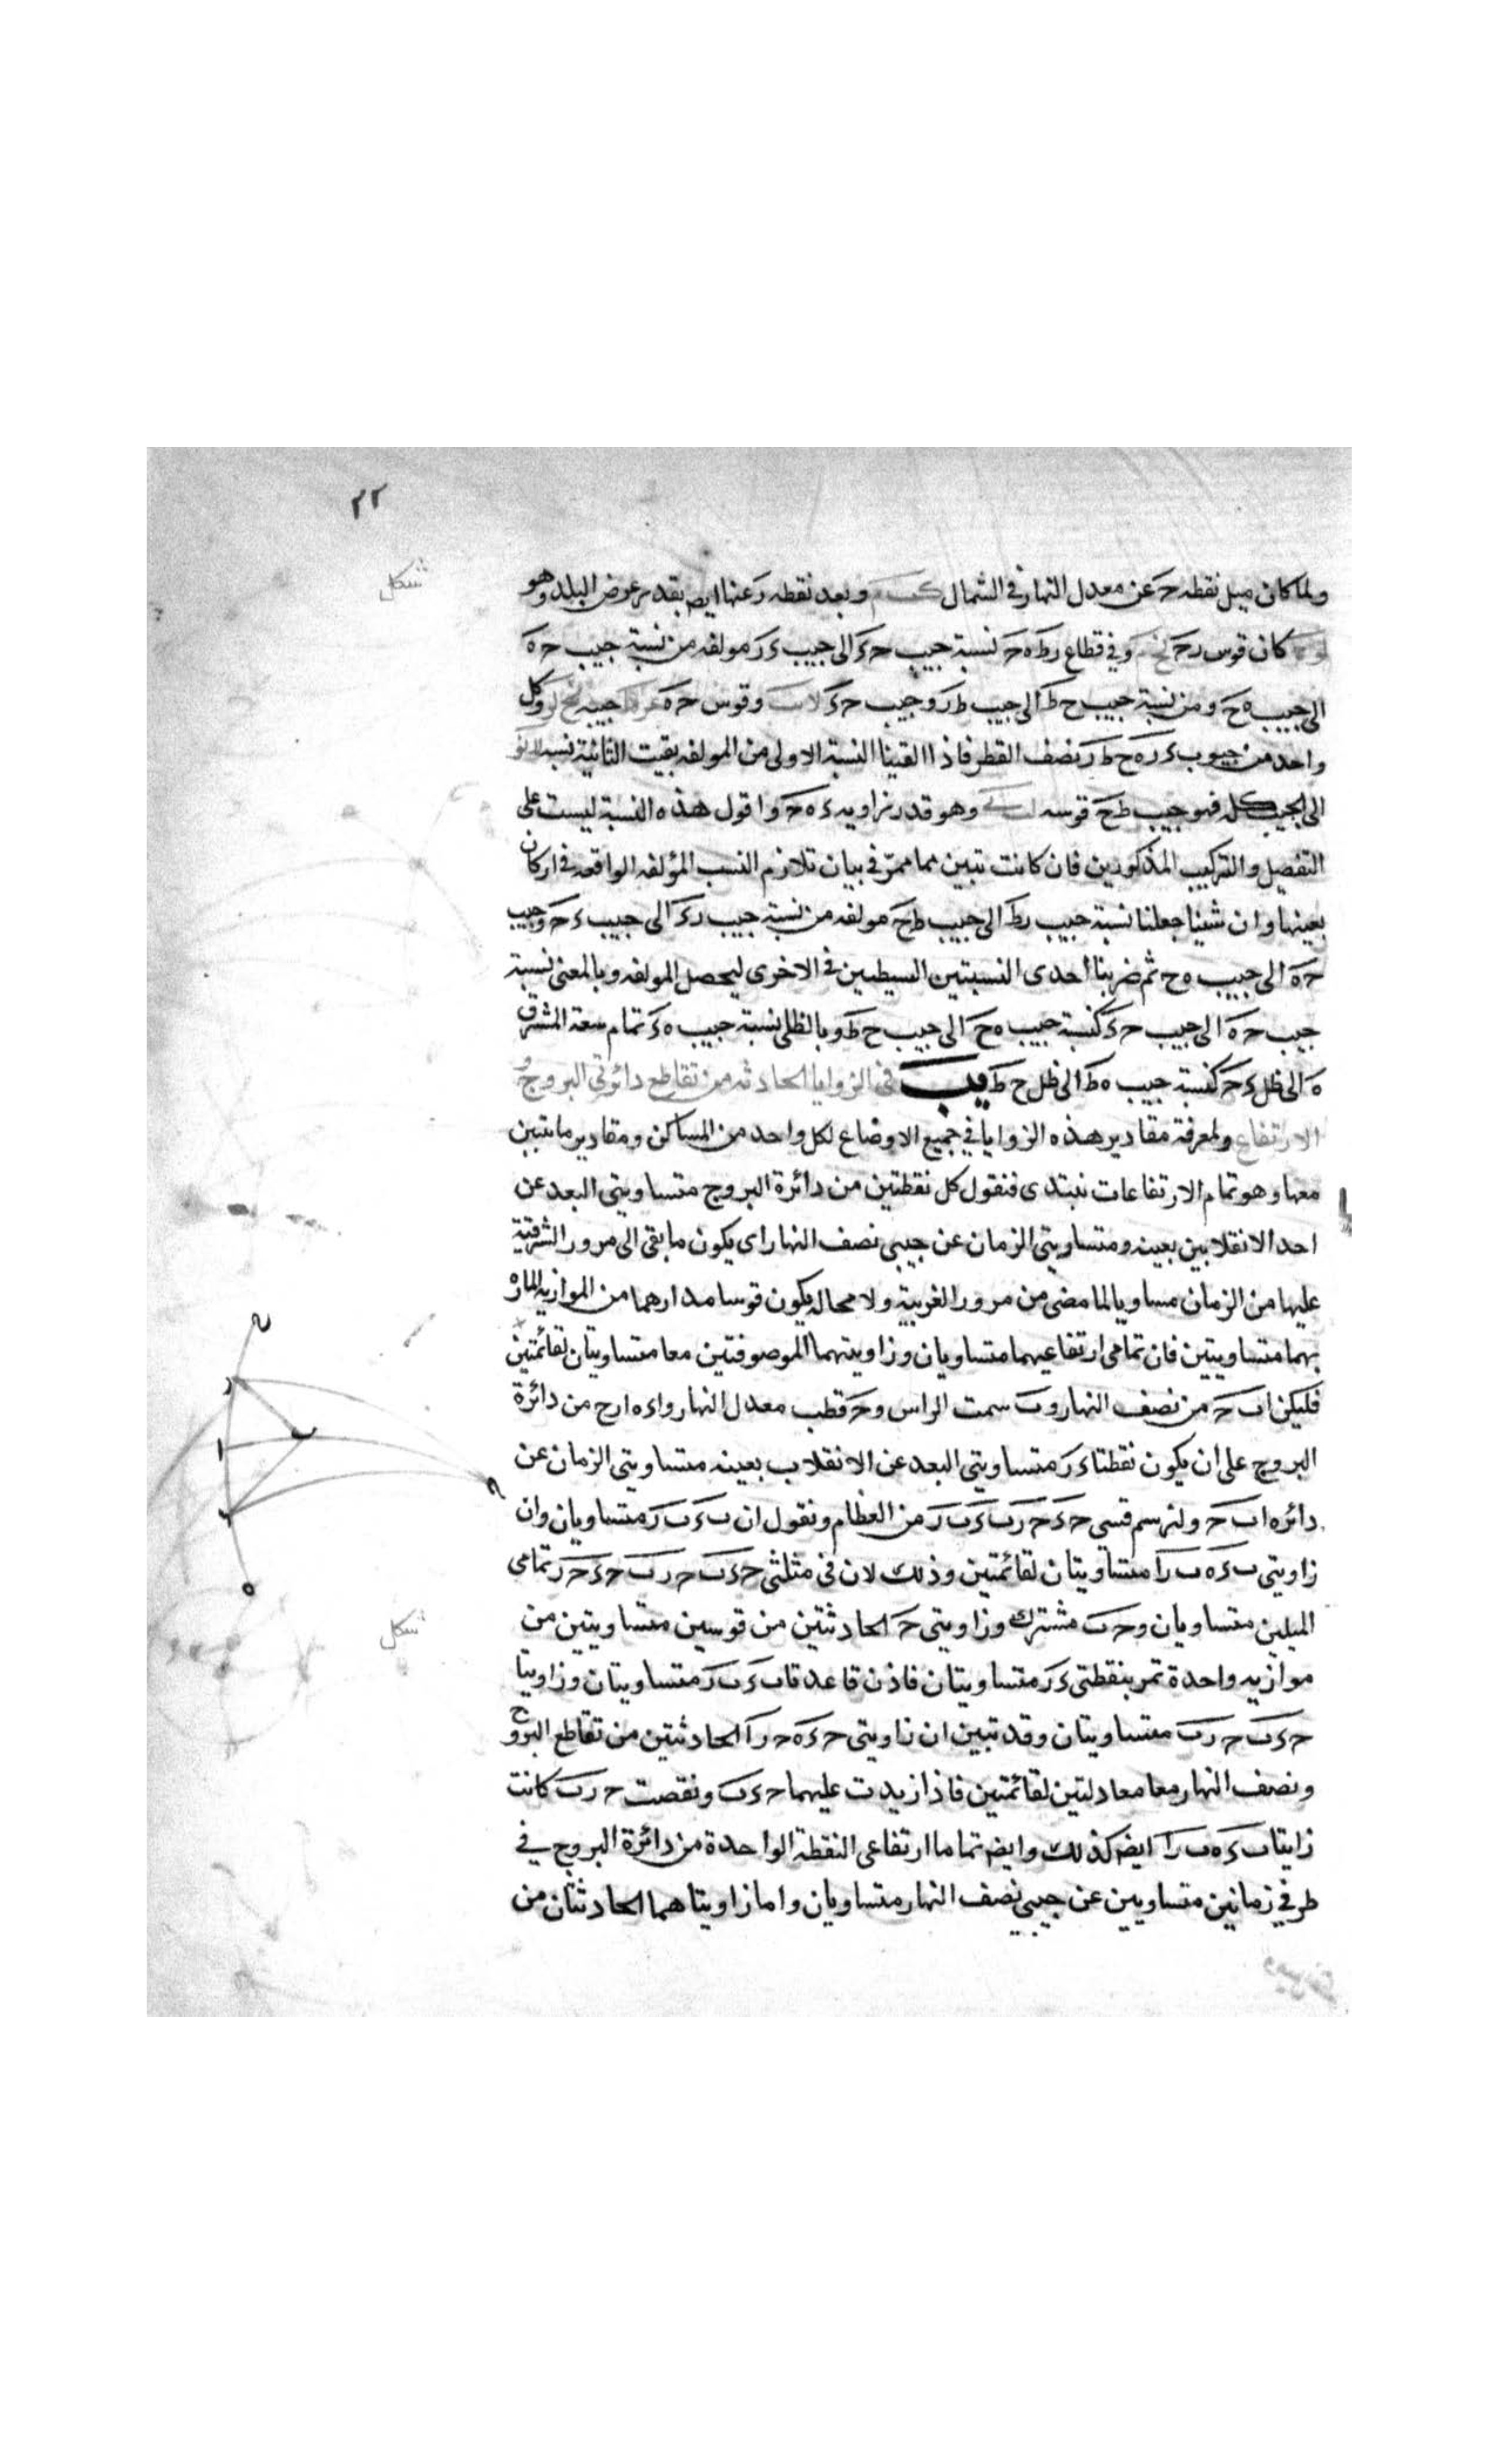 ٢٢
شكل
ولما كان ميل نقطه حَ عن معدل النهار في الشمال وبعد نقطه رَ عنها ايض بقدر عرض البلد وهو
كان قوس رحَ وفي قطاع رط ه حَ نسبة جيب حءَ الى جيب ءرَ مولفه من نسبة جيب حهَ
الى جيب ه حَ ومن نسبة جيب ح طَ الى جيب طرَ وجيب حءَ وقوس حهَ جيبه وكل
واحد من جيوب ءر ه ح ط رَ نصف القطر فاذا القينا النسبة الاولى من المولفه بقيت الثانية نسبة
الى الجيب كله فهو جيب طحَ قوسه وهو قدر زاويه ء ه حَ واقول هذه النسبة ليست على
التفصيل والتركيب المذكورين فان كانت تبين مما مرّ في بيان تلازم النسب المؤلفه الواقعه في اركان
بعينها وان شينا جعلنا نسبة جيب رطَ الى جيب طحَ مولفه من نسبة جيب رءَ الى جيب ءحَ وجيب
حهَ الى جيب ه ح ثم ضربنا احدى النسبتين البسيطين في الاخرى ليحصل المولفه وبالمعنى نسبة
جيب حهَ الى جيب حءَ كنسبة جيب ه حَ الى جيب ح طَ وبالظلى نسبة جيب ه ءَ تمام سعة المشرق
هَ الى ظل ءحَ كنسبة جيب ه طَ الى ظل ح طَ يب في الزوايا الحادثه من تقاطع دائرتى البروج و
الارتفاع ولمعرفة مقادير هذه الزوايا في جميع الاوضاع لكل واحد من المساكن ومقادير ما تبين
معها وهو تمام الارتفاعات نبتدى فنقول كل نقطتين من دائرة البروج متساويتى البعد عن
احد الانقلابين بعينه ومتساويتى الزمان عن جيبى نصف النهار اى يكون ما بقى الى مرور الشرقية
عليها من الزمان مساويا لما مضى من مرور الغربية ولا محاله يكون قوسا مدارهما من الموازيه الماره
بهما متساويتين فان تمامى ارتفاعيهما متساويان وزاويتهما الموصوفتين معا متساويتان لقائمتين
فليكن اب حَ من نصف النهار وبَ سمت الراس وحَ قطب معدل النهار واء ه ارح من دائرة
البروج على ان يكون نقطتا ءرَ متساويتى البعد عن الانقلاب بعينه متساويتى الزمان عن
دائره اب حَ ولنرسم قسى حءَ حرَ بءَ برَ من العظام ونقول ان بءَ برَ متساويان وان
زاويتى بءه براَ متساويتان لقائمتين وذلك لان فى مثلثى حءب حرب حءَ حرَ تمامى
الميلين متساويان وحبَ مشترك وزاويتى حَ الحادثتين من قوسين متساويتين من
موازيه واحدة تمر بنقطتى ءرَ متساويتان فاذن قاعدتا بءَ برَ متساويتان وزاويتا
حءبَ حربَ متساويتان وقد تبين ان زاويتى حءه حراَ الحادثتين من تقاطع البروج
ونصف النهار معا معادلتين لقائمتين فاذا زيدت عليهما حءبَ ونقصت حربَ كانت
زايتا بءه براَ ايضَ كذلك وايضَ تماما ارتفاعى النقطة الواحدة من دائرة البروج في
طرفي زمانين متساويين عن جيبى نصف النهار متساويان واما زاويتاهما الحادثتان من
شكل